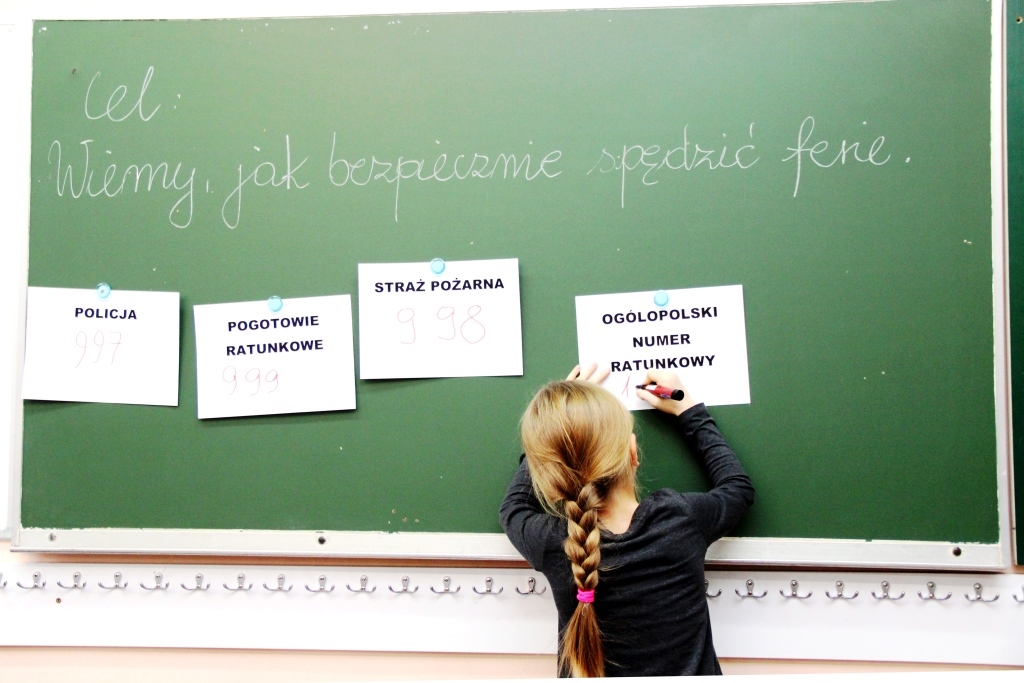 Cel:
Wiemy, jak bezpiecznie spędzić ferie.
POLICJA
997
POGOTOWIE
RATUNKOWE
999
STRAŻ POŻARNA
998
OGÓLOPOLSKI
NUMER
RATUNKOWY
1